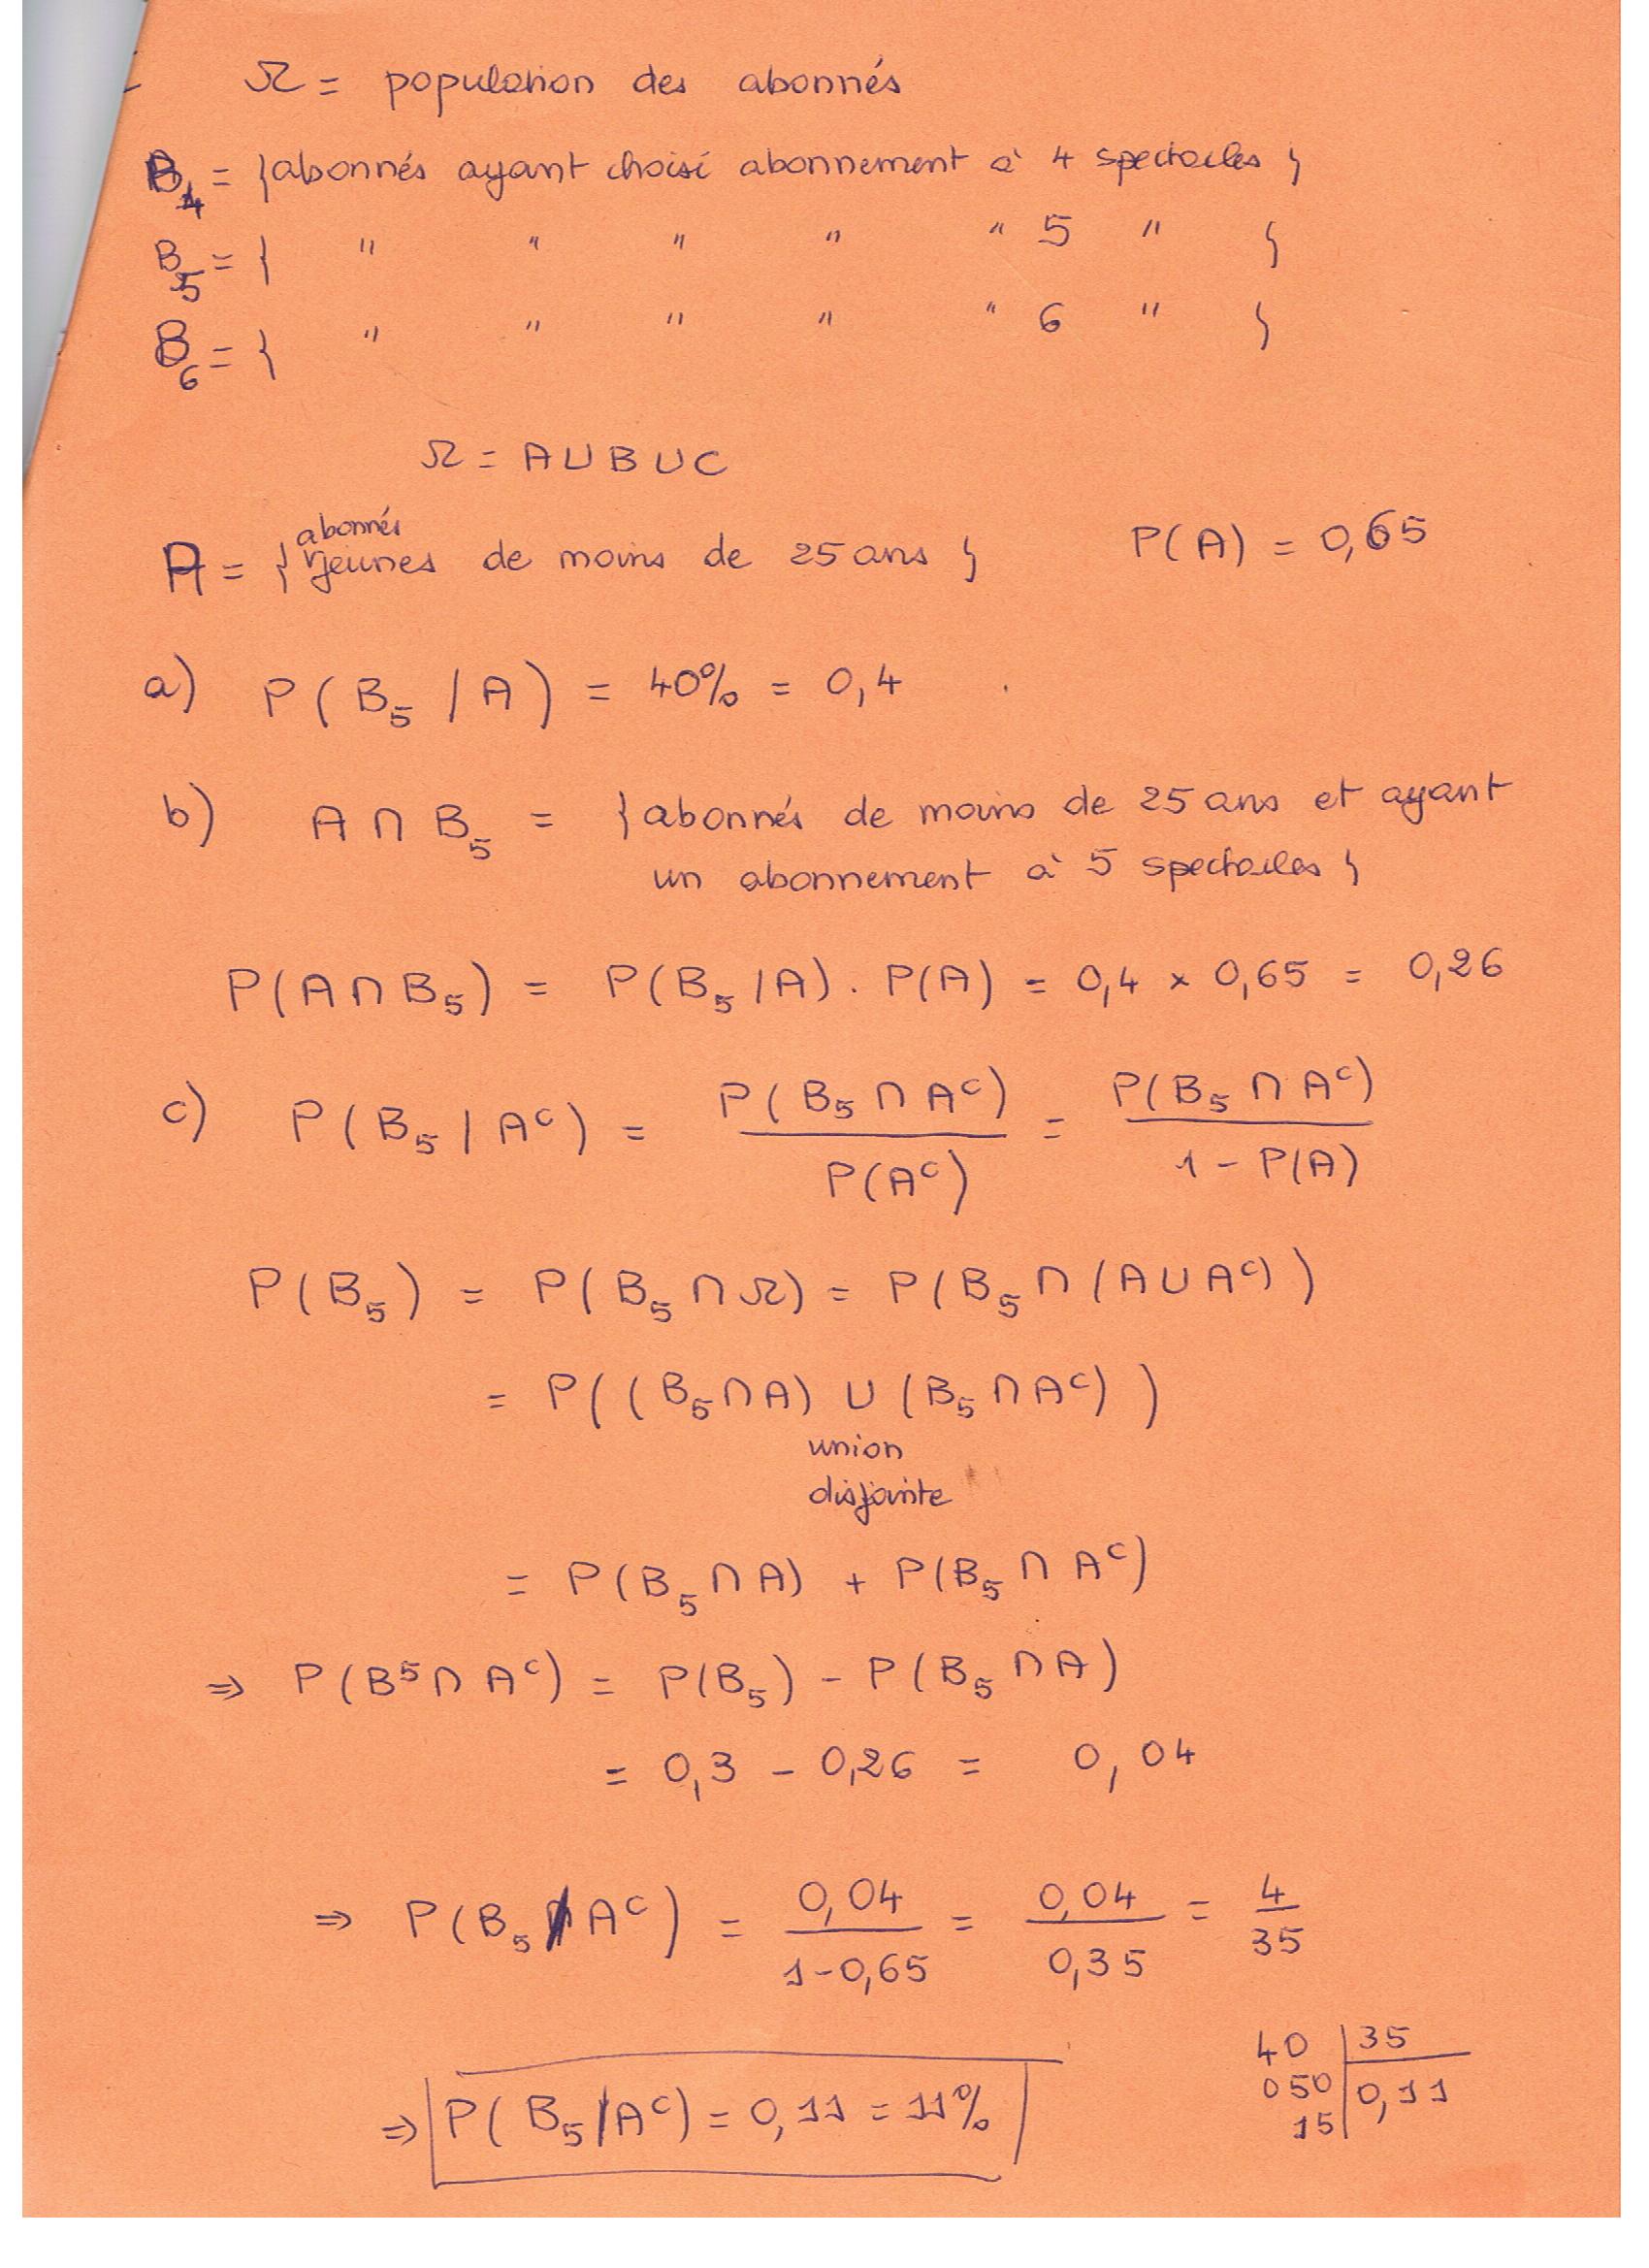 Ω = population des abonnés
B4 = {abonnés ayant choisi abonnement à 4 spectacles}
B5 = { " " " " " 5 " }
B6 = { " " " " " 6 " }
Ω = A ∪ B ∪ C
abonnés
A = {jeunes de moins de 25 ans} P(A) = 0,65
a) P(B5 / A) = 40% = 0,4
b) A ∩ B5 = {abonnés de moins de 25 ans et ayant
un abonnement à 5 spectacles}
P(A ∩ B5) = P(B5 / A) . P(A) = 0,4 × 0,65 = 0,26
c) P(B5 | A^c) = P(B5 ∩ A^c) / P(A^c) = P(B5 ∩ A^c) / 1 - P(A)
P(B5) = P(B5 ∩ Ω) = P(B5 ∩ (A ∪ A^c))
= P((B5 ∩ A) ∪ (B5 ∩ A^c))
union
disjointe
= P(B5 ∩ A) + P(B5 ∩ A^c)
⇒ P(B^5 ∩ A^c) = P(B5) - P(B5 ∩ A)
= 0,3 - 0,26 = 0,04
⇒ P(B5 / A^c) = 0,04 / 1-0,65 = 0,04 / 0,35 = 4 / 35
40 | 35
050 | 0,11
15
⇒ P(B5 / A^c) = 0,11 = 11%